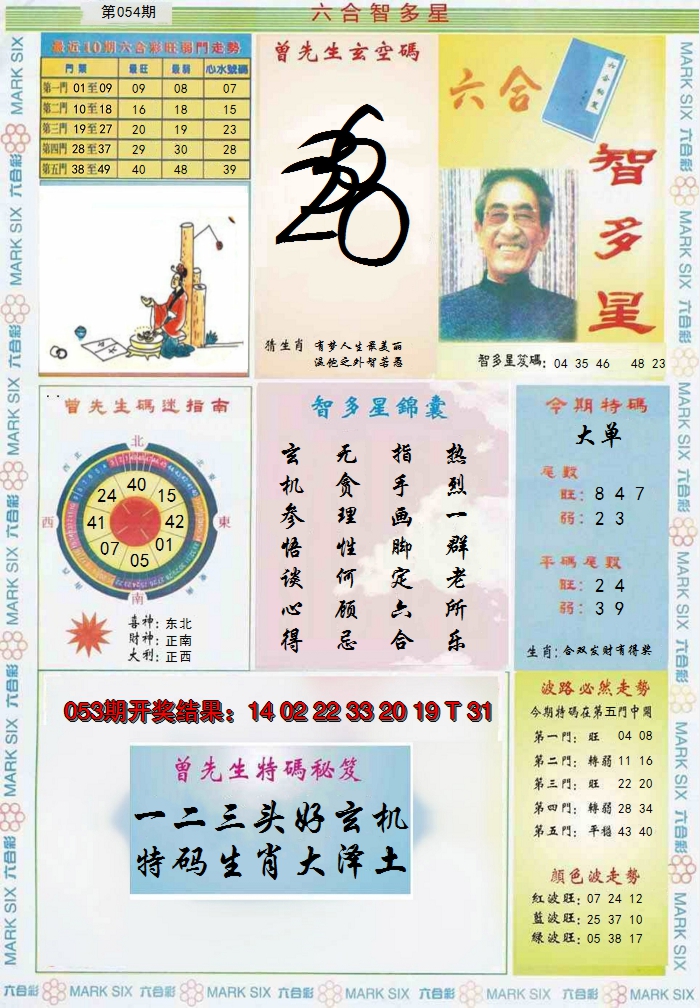 第054期
六合智多星
最近10期六合彩旺弱門走勢
門類 最旺 最弱 心水號碼
第一門 01至09 09 08 07
第二門 10至18 16 18 15
第三門 19至27 20 19 23
第四門 28至37 29 30 28
第五門 38至49 40 48 39
曾先生玄空碼
猜生肖 有梦人生最美丽
温饱之外智若愚
六合
智多星
智多星笈碼: 04 35 46 48 23
曾先生碼迷指南
北
西北
東北
西
東
南
40
24 15
41 42
07 01
05
喜神: 东北
財神: 正南
大利: 正西
智多星錦囊
热烈一群老所乐
指手画脚定六合
无贪理性何顾忌
玄机参悟谈心得
今期特碼
大单
尾數
旺: 8 4 7
弱: 2 3
平碼尾數
旺: 2 4
弱: 3 9
生肖: 合双发财有得奖
053期开奖结果: 14 02 22 33 20 19 T 31
曾先生特碼秘笈
一二三头好玄机
特码生肖大泽土
波路必然走勢
今期特碼在第五門中開
第一門: 旺 04 08
第二門: 轉弱 11 16
第三門: 旺 22 20
第四門: 轉弱 28 34
第五門: 平穩 43 40
顏色波走勢
紅波旺: 07 24 12
藍波旺: 25 37 10
绿波旺: 05 38 17
MARK SIX 六合彩